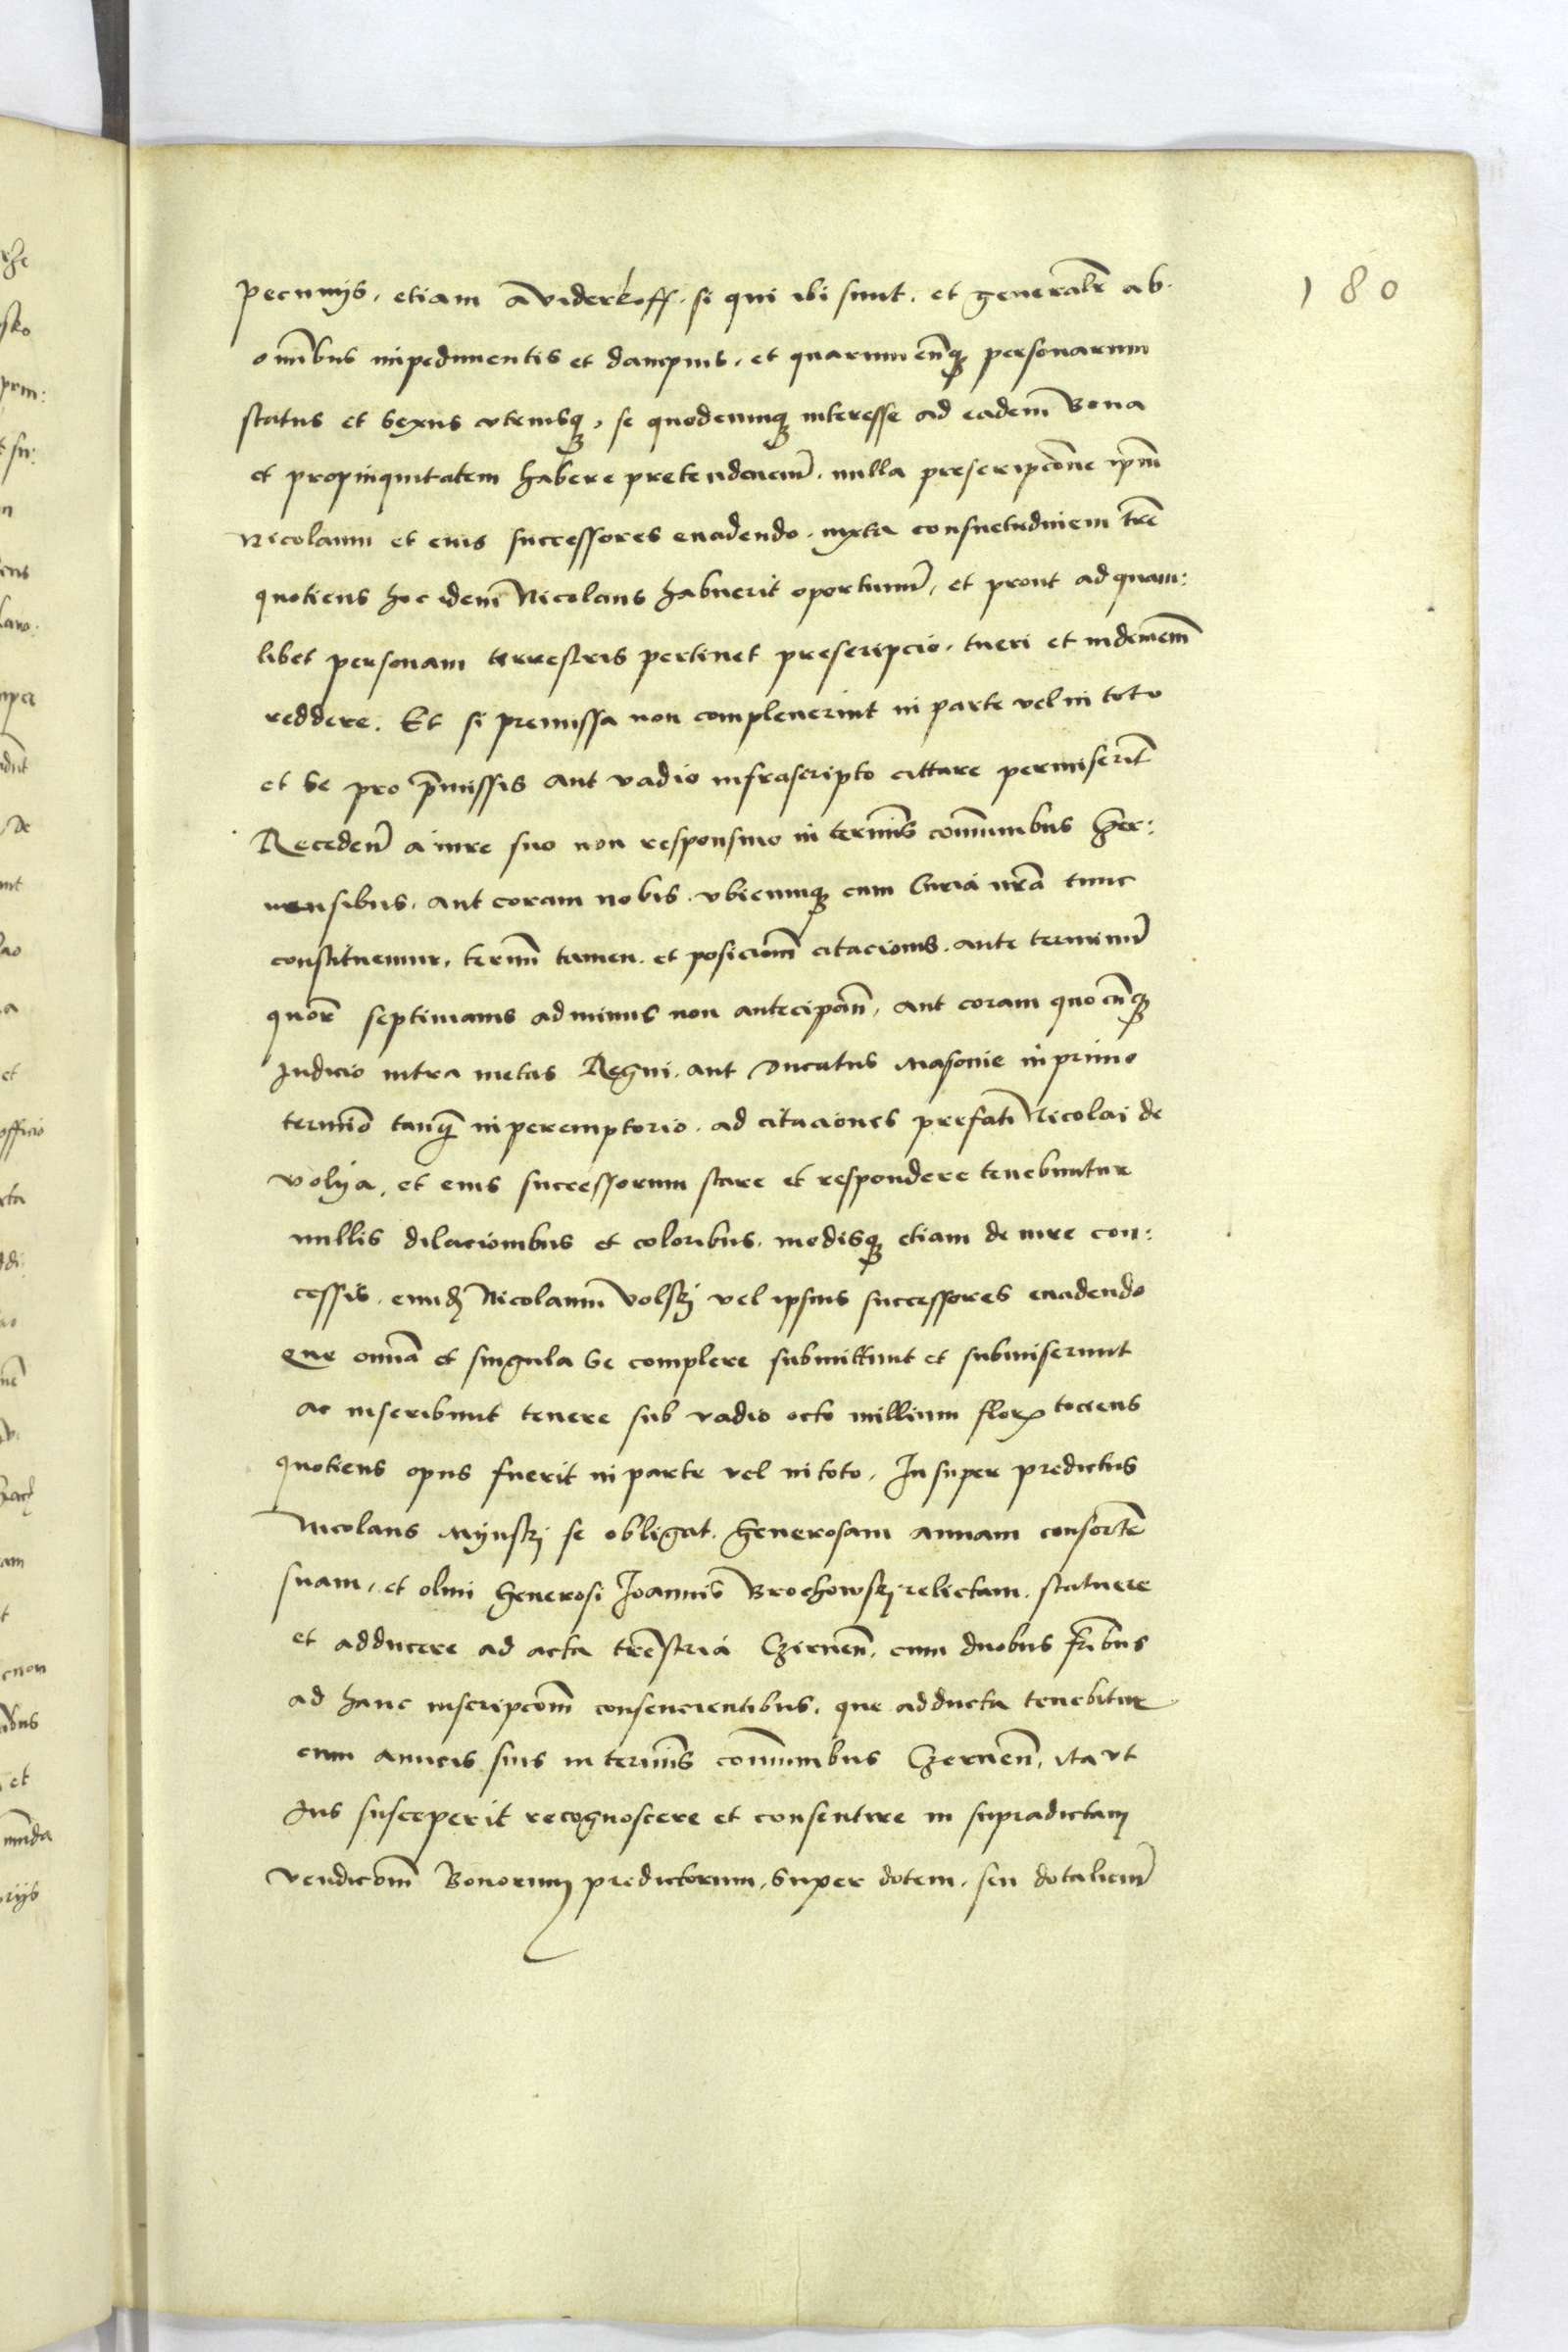 180
pecunijs, etiam a viderkoff, si qui ibi sunt, et generalr̃ ab
om̃ibus impedimentis et dampnis, et quarumcũq3 personarum
status et sexus vtriusq3, se quodcumq3 interesse ad eadem bona
et propinquitatem habere pretendenciũ, nulla prescripcõne ip̃m
Nicolaum et eius successores euadendo, iuxta consuetudinem tr̃e
quotiens hoc idem Nicolaus habuerit oportunũ, et prout ad quam:
libet personam terrestris pertinet prescripcio, tueri et indemnem̃
reddere. Et si premissa non compleuerint in parte vel in toto
et se pro p̃missis aut vadio infrascripto cittare permiserĩt
Recedeñ a iure suo non responsiuo in termĩs com̃unibus Czer:
nensibus, aut coram nobis, vbicumq3 cum Curia nr̃a tunc
constituemur, termĩ tamen et posiciom̃ citacionis, ante terminũ
quor̃ septimanis ad minus non antecipañ, aut coram quocũq3
Judicio intra metas Regni, aut Ducatus Masouie in primo
termĩo tanq̃ in peremptorio, ad citaciones prefati Nicolai de
Volya, et eius successorum stare et respondere tenebuntur
nullis dilacionibus et coloribus, modisq3 etiam de iure con:
cessis, eund3 Nicolaum Volskj vel ipsius successores euadendo
que om̃ia et singula se complere submittunt et submiserunt
ac inscribunt tenere sub vadio octo millium florꝝ tociens
quotiens opus fuerit in parte vel in toto. Insuper predictus
Nicolaus Mijnskj se obligat, Generosam annam consortẽ
suam, et olim Generosi Joannis Brochowskj relictam, statuere
et adducere ad acta tr̃estria Czirneñ, cum duobus fr̃ibus
ad hanc inscripcõm consencientibus, que adducta tenebitur
cum amicis suis in termĩs com̃unibus Czerneñ, ita vt
Jus susceperit recognoscere et consentire in supradictam
vendicõm Bonorum predictorum, super dotem, seu dotaliciũ